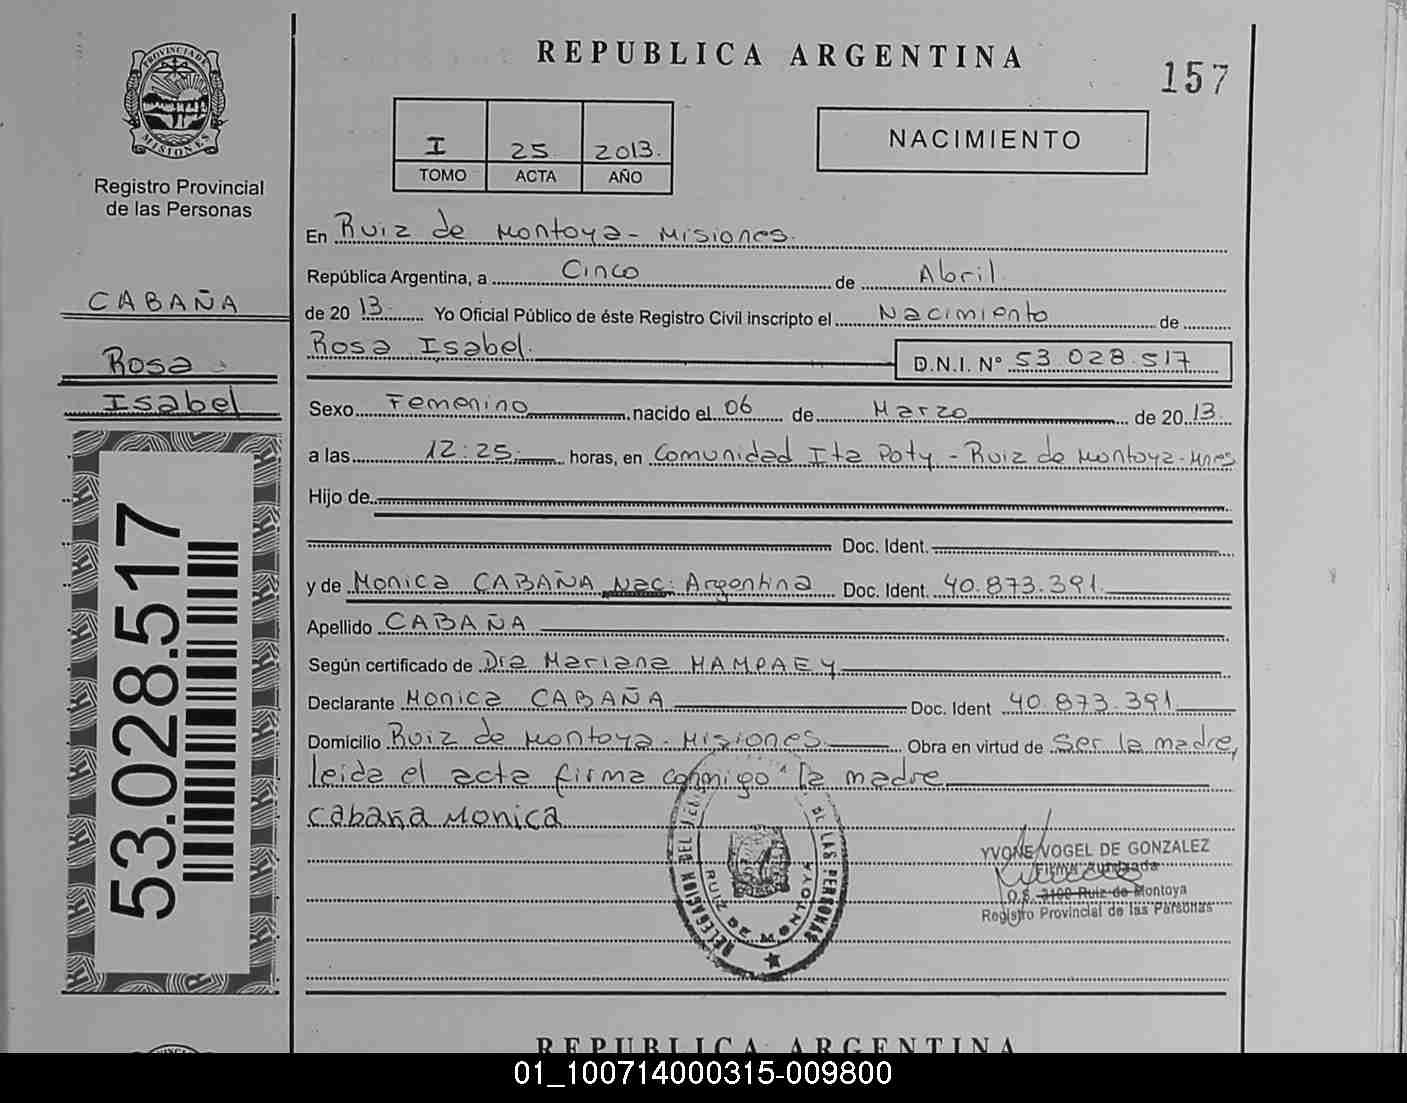 REPUBLICA ARGENTINA
157
PROVINCIA DE MISIONES
Registro Provincial
de las Personas
I 25 2013.
TOMO ACTA AÑO
NACIMIENTO
CABAÑA
Rosa
Isabel
53.028.517
En Ruiz de Montoya - Misiones.
República Argentina, a Cinco de Abril.
de 20 13. Yo Oficial Público de éste Registro Civil inscripto el Nacimiento de
Rosa Isabel. D.N.I. N° 53.028.517
Sexo Femenino nacido el 06 de Marzo de 20 13.
a las 12:25.- horas, en Comunidad Ita Poty - Ruiz de Montoya - Mnes
Hijo de
Doc. Ident.
y de Monica CABAÑA Nac: Argentina Doc. Ident. 40.873.391.
Apellido CABAÑA
Según certificado de Dra Mariana HAMPAEY
Declarante Monica CABAÑA Doc. Ident 40.873.391
Domicilio Ruiz de Montoya - Misiones. Obra en virtud de ser la madre,
leida el acta firma conmigo la madre
Cabaña Monica
RUIZ DE MONTOYA
DE LAS PERSONAS
YVONE VOGEL DE GONZALEZ
Firma Autorizada
O.S. 3100 Ruiz de Montoya
Registro Provincial de las Personas
REPUBLICA ARGENTINA
01_100714000315-009800